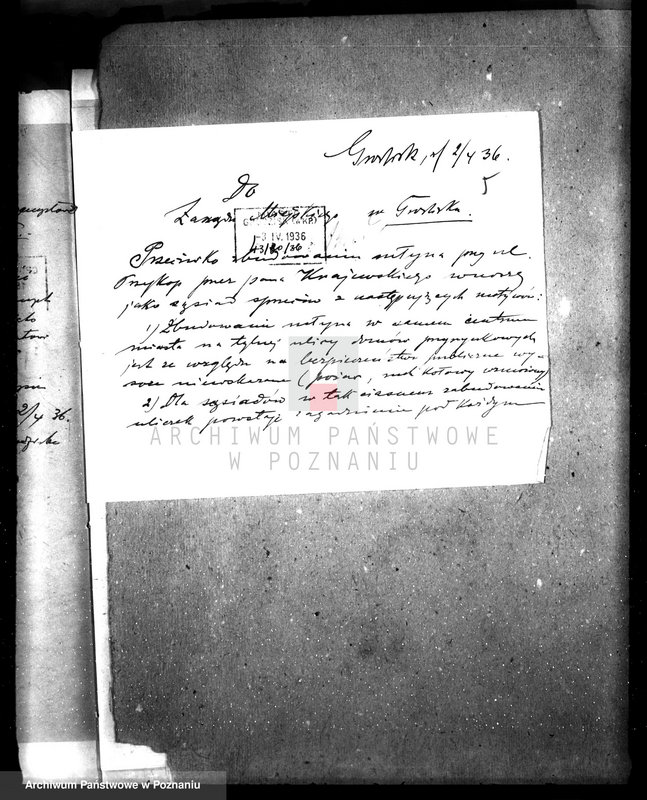 Grodzisk, d/ 2/4 36.
5
Do
Zarządu Miejskiego w Grodzisku.
3. IV. 1936
Przeciwko zbudowaniu młyna przy ul.
Przykop przez pana Krajewskiego wnoszę
jako sąsiad sprzeciw z następujących motywów:
1) Zbudowanie młyna w samem centrum
miasta na tylnej ulicy domów przyrynkowych
jest ze względu na bezpieczeństwo publiczne wy-
soce niewskazane (pożar, ruch kołowy wzmożony)
2) Dla sąsiadów w tak ciasnem zabudowaniu
uliczek powstaje zagrożenie pod każdym
ARCHIWUM PAŃSTWOWE
W POZNANIU
2/4 36.
Archiwum Państwowe w Poznaniu